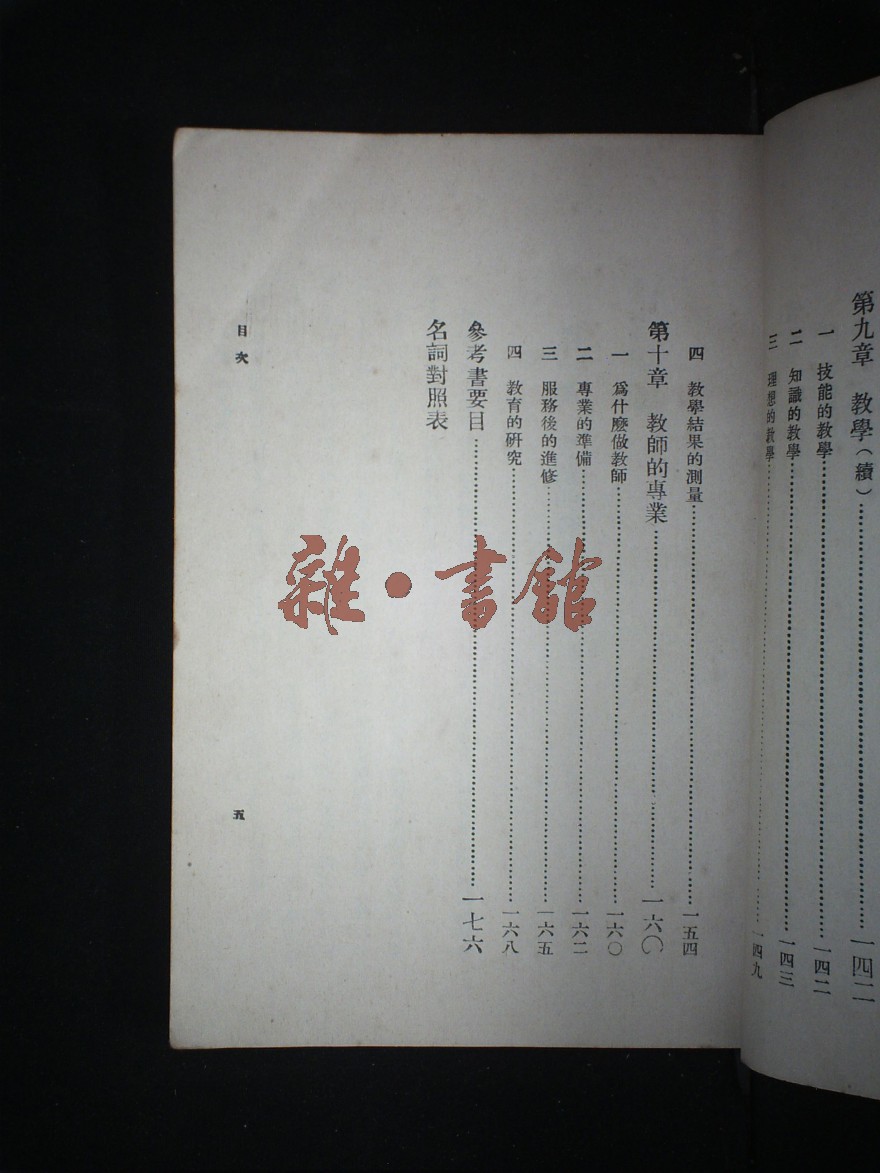 第九章　教學（續）……一四二
一　技能的教學……一四二
二　知識的教學……一四三
三　理想的教學……一四九
四　教學結果的測量……一五四
第十章　教師的專業……一六〇
一　爲什麼做教師……一六〇
二　專業的準備……一六二
三　服務後的進修……一六五
四　教育的研究……一六八
參考書要目……一七六
名詞對照表
目次
五
雜·書館